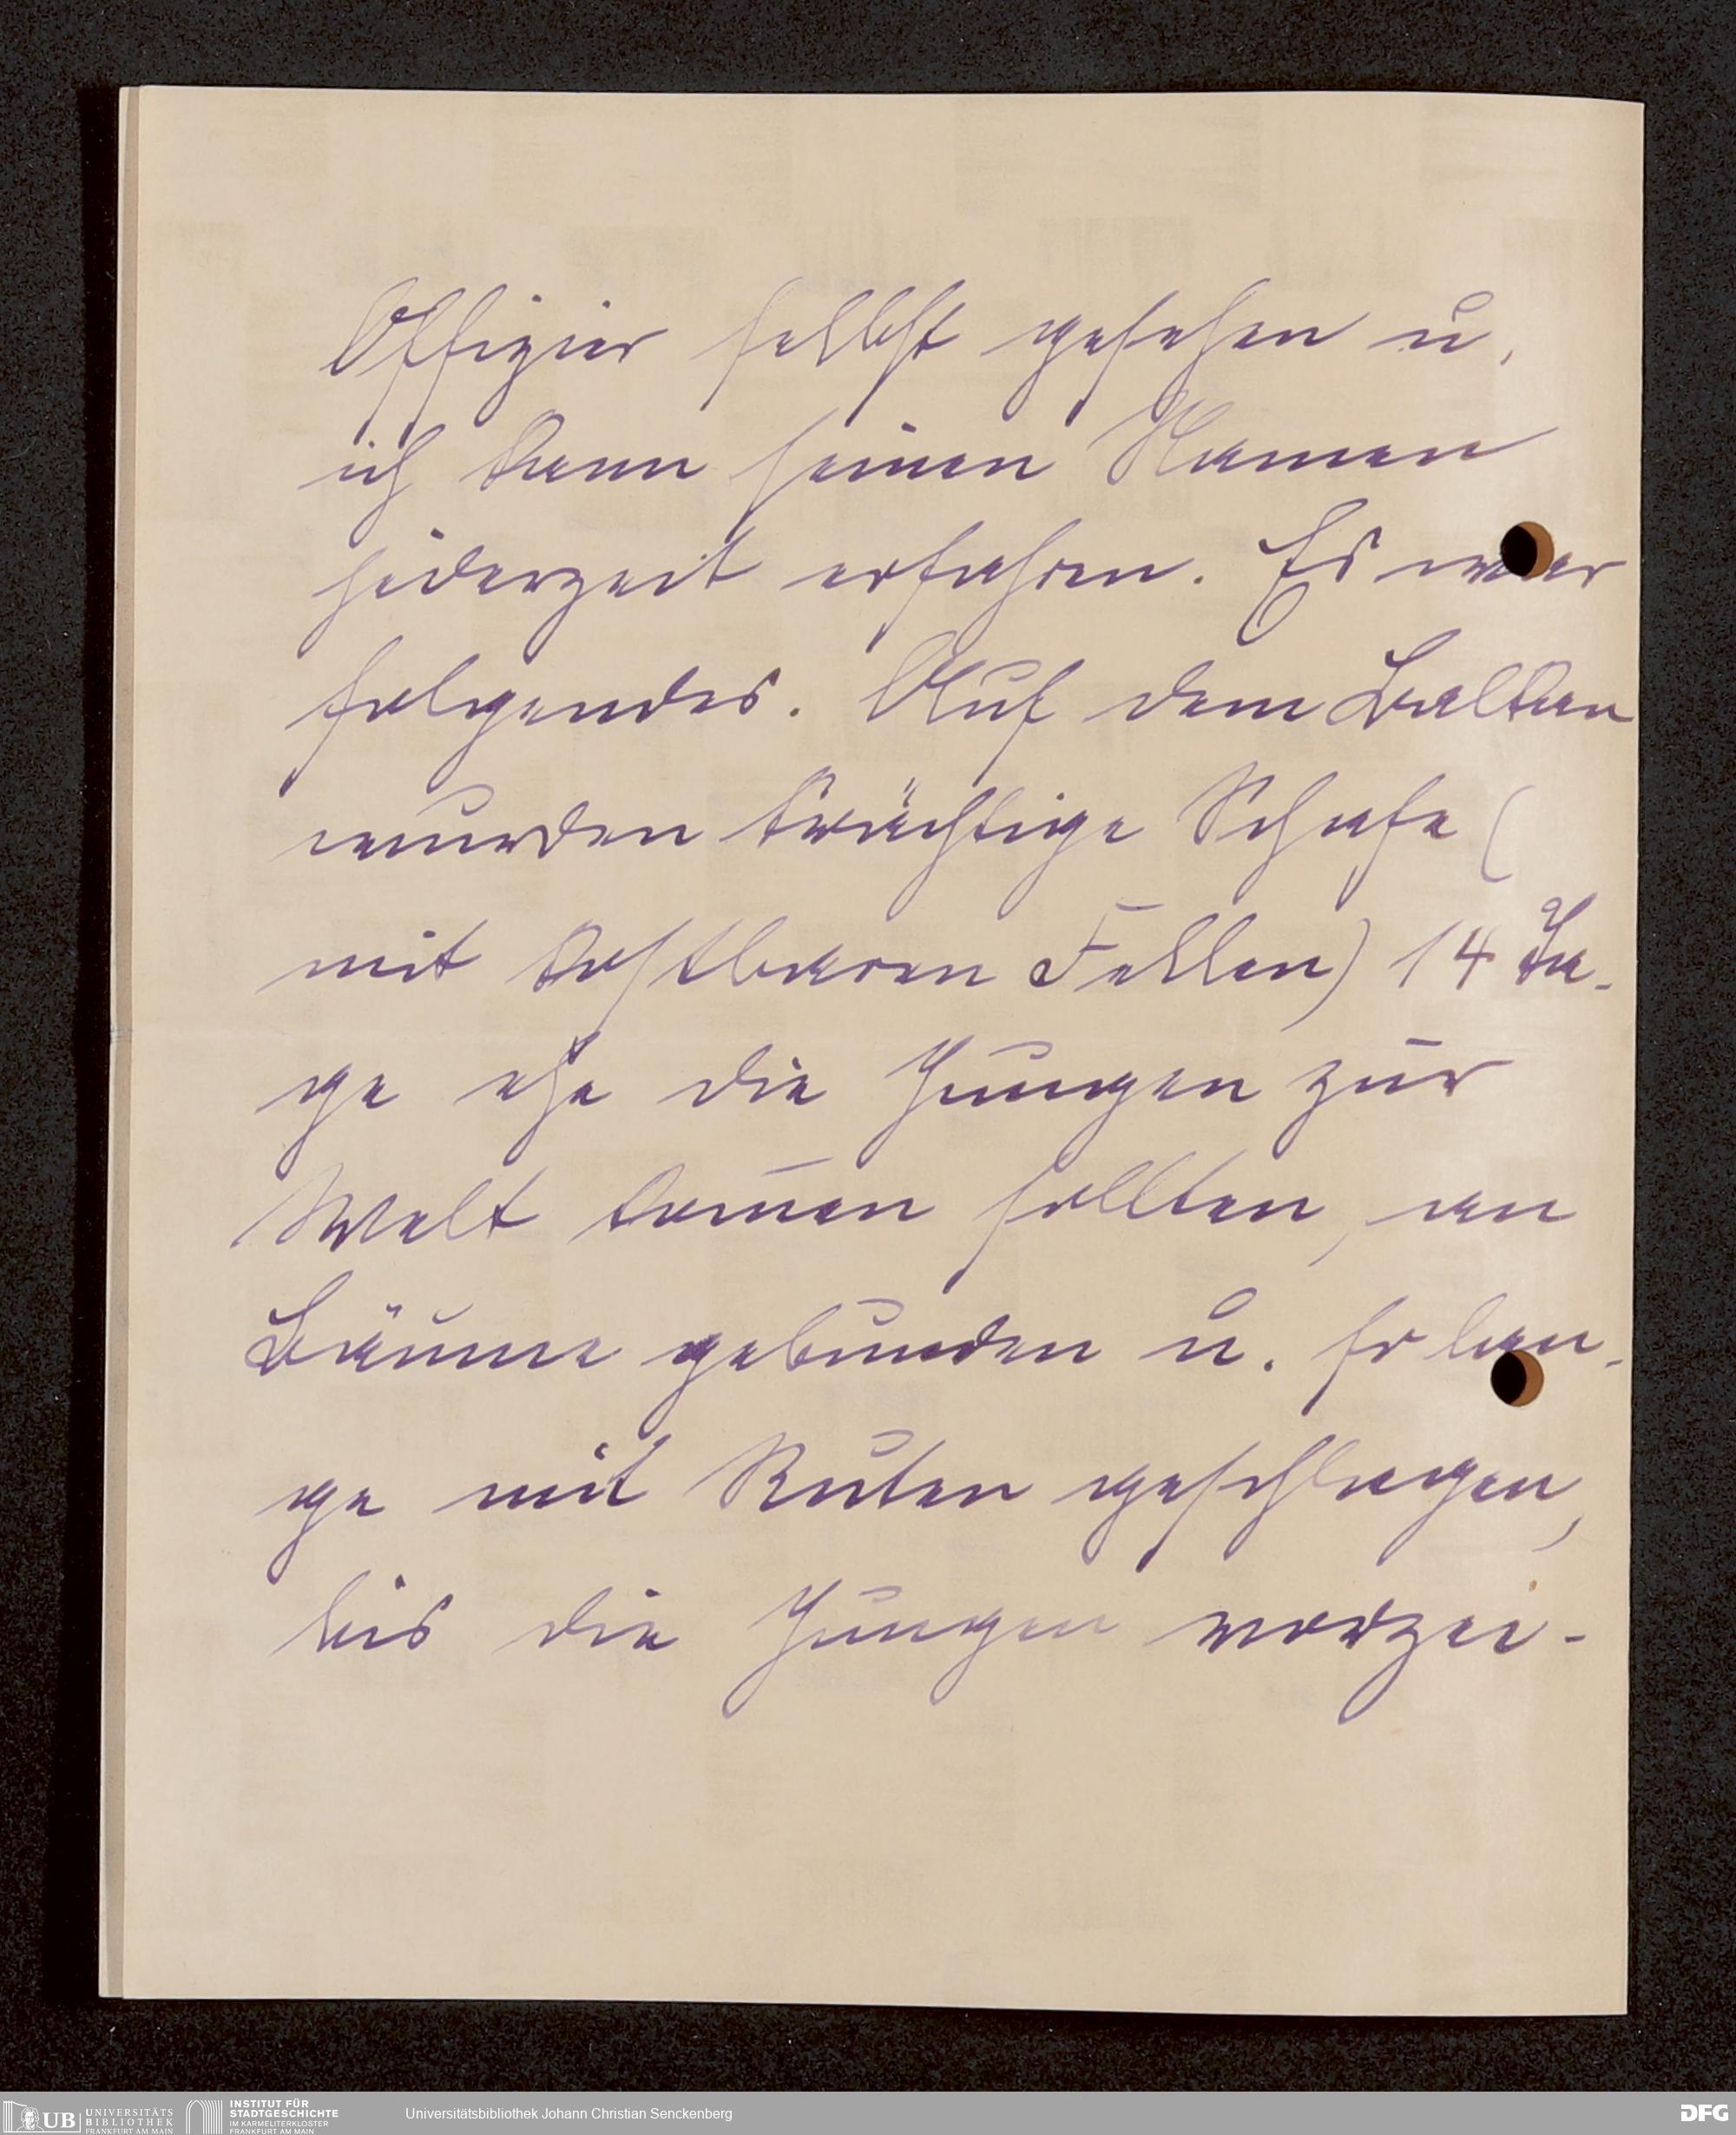 Offizier selbst gesehen u.
ich kann seinen Namen
jederzeit erfahren. Es war
folgendes. Auf dem Balkan
wurden trächtige Schafe (
mit kostbaren Fellen) 14 Ta-
ge ehe die Jungen zur
Welt kom̄en sollten, an
Bäume gebunden u. so lan-
ge mit Ruten geschlagen,
bis die Jungen vorzei-
UB UNIVERSITÄTS
BIBLIOTHEK
FRANKFURT AM MAIN
INSTITUT FÜR
STADTGESCHICHTE
IM KARMELITERKLOSTER
FRANKFURT AM MAIN
Universitätsbibliothek Johann Christian Senckenberg
DFG